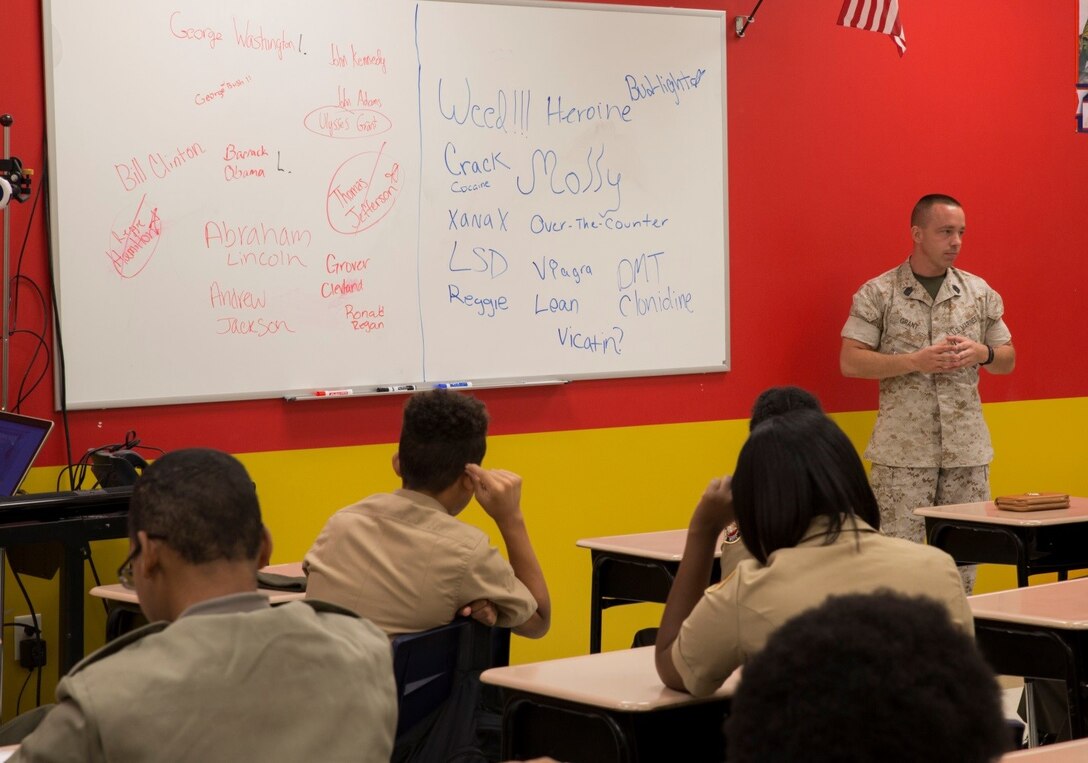 George Washington
John Kennedy
George Bush II
John Adams
Ulysses Grant
Bill Clinton
Barrack
Obama
L.
Thomas
Jefferson
Hamilton
Abraham
Lincoln
Grover
Cleveland
Andrew
Jackson
Ronald
Regan
Weed!!!
Heroine
Bud-light
Crack
Cocaine
Molly
Xanax
Over-The-Counter
LSD
Viagra
DMT
Reggie
Lean
Clonidine
Vicatin?
GRANT